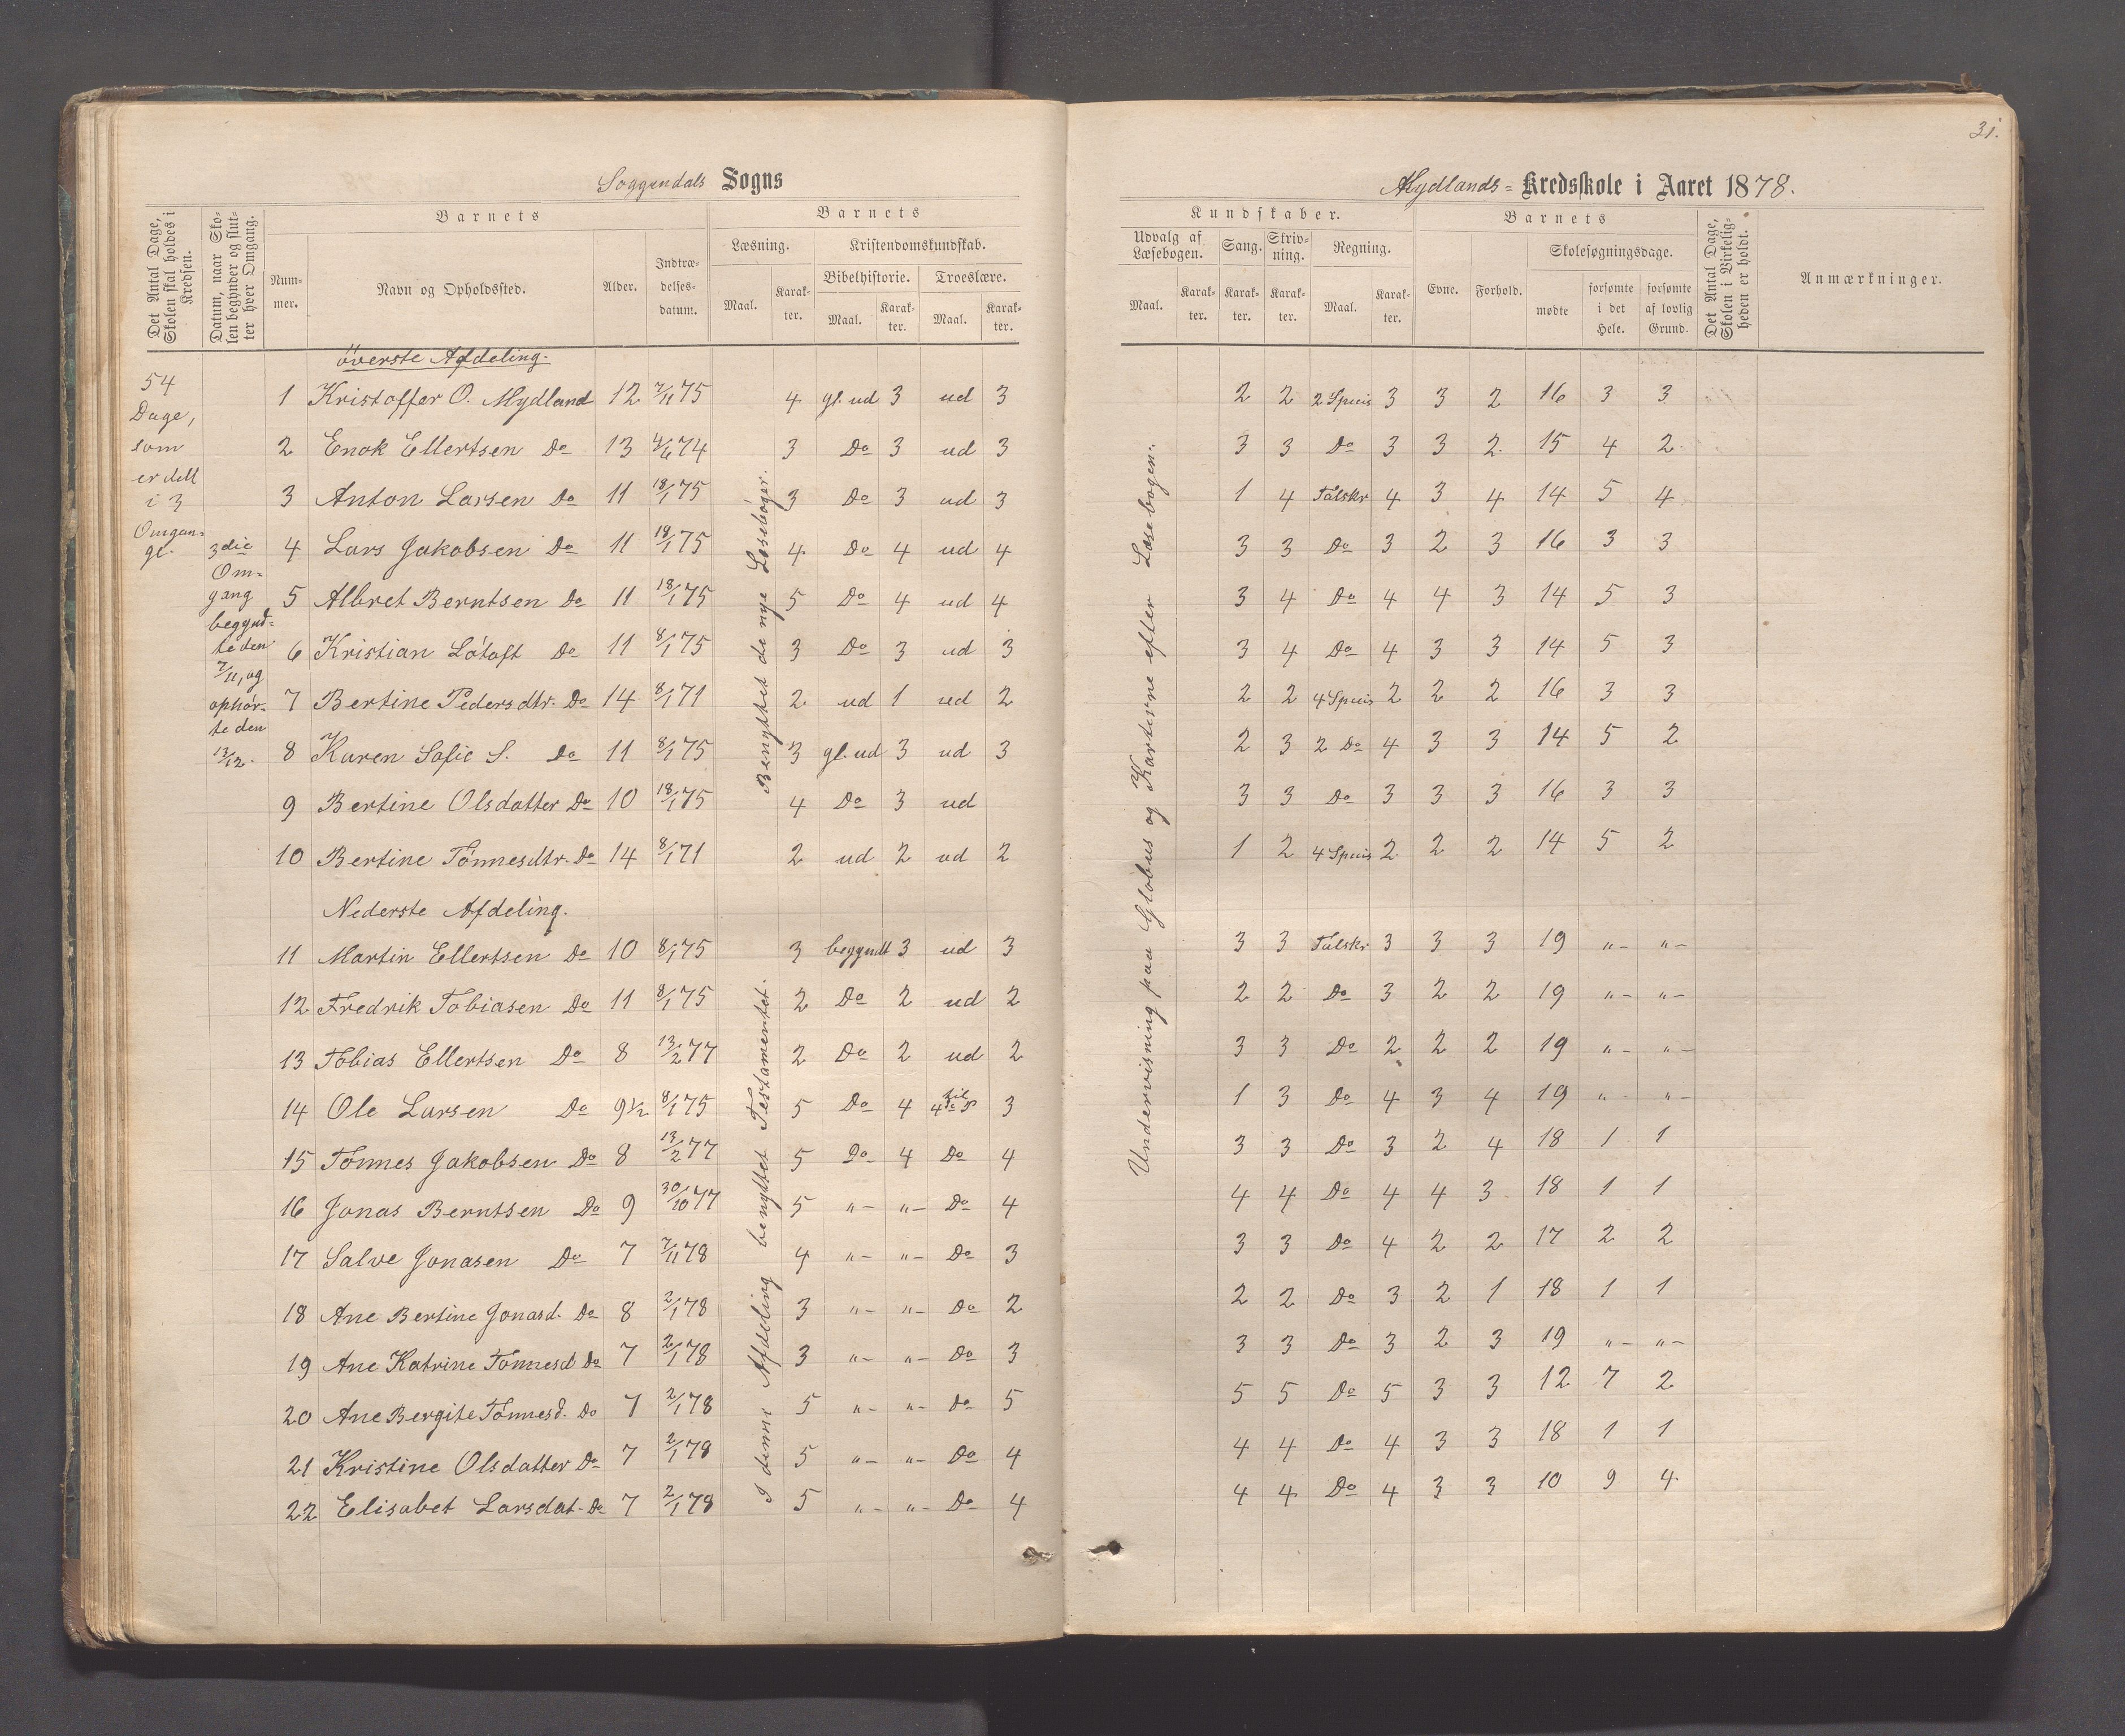 31.
Soggendals Sogns
Mydlands- Kredsskole i Aaret 1878.
Det Antal Dage, Skolen skal holdes i Kredsen.
Datum, naar Skolen begynder og slutter hver Omgang.
Barnets
Barnets
Nummer.
Navn og Opholdssted.
Alder.
Indtrædelsesdatum.
Læsning.
Kristendomskundskab.
Bibelhistorie.
Troeslære.
Maal. Karakter. Maal. Karakter. Maal. Karakter.
Kundskaber.
Barnets
Udvalg af Læsebogen. Sang. Skrivning. Regning.
Evne. Forhold.
Skolesøgningsdage.
Maal. Karakter. Karakter. Karakter. Maal. Karakter.
mødte
forsømte i det Hele.
forsømte af lovlig Grund.
Det Antal Dage, Skolen i Virkeligheden er holdt.
Anmærkninger.
54
Dage,
som
er delt
i 3
Omgan-
ge.
3die
Om-
gang
begynd-
te den
7/11, og
ophør-
te den
13/12.
Benyttet de nye Læsebøger.
I denne Afdeling benyttet Testamentet.
Undervisning paa Globus og Karterne efter Læsebogen.
överste Afdeling.
1 Kristoffer O. Mydland 12 7/11 75 4 gl. ud 3 ud 3 2 2 2 Speis 3 3 2 16 3 3
2 Enok Ellertsen Do 13 4/6 74 3 Do 3 ud 3 3 3 Do 3 3 2 15 4 2
3 Anton Larsen Do 11 18/1 75 3 Do 3 ud 3 1 4 Talskr 4 3 4 14 5 4
4 Lars Jakobsen Do 11 18/1 75 4 Do 4 ud 4 3 3 Do 3 2 3 16 3 3
5 Albret Berntsen Do 11 18/1 75 5 Do 4 ud 4 3 4 Do 4 4 3 14 5 3
6 Kristian Lótoft Do 11 8/1 75 3 Do 3 ud 3 3 4 Do 4 3 3 14 5 3
7 Bertine Pedersdtr. Do 14 8/1 71 2 ud 1 ud 2 2 2 4 Speis 2 2 2 16 3 3
8 Karen Sofie S. Do 11 8/1 75 3 gl. ud 3 ud 3 2 3 2 Do 4 3 3 14 5 2
9 Bertine Olsdatter Do 10 18/1 75 4 Do 3 ud 3 3 Do 3 3 3 16 3 3
10 Bertine Tönnesdtr. Do 14 8/1 71 2 ud 2 ud 2 1 2 4 Speis 2 2 2 14 5 2
Nederste Afdeling.
11 Martin Ellertsen Do 10 8/1 75 3 begyndt 3 ud 3 3 3 Talskr 3 3 3 19 "- "-
12 Fredrik Tobiasen Do 11 8/1 75 2 Do 2 ud 2 2 2 Do 3 2 2 19 "- "-
13 Tobias Ellertsen Do 8 13/2 77 2 Do 2 ud 2 3 3 Do 2 2 2 19 "- "-
14 Ole Larsen Do 9½ 8/1 75 5 Do 4 3 1 3 Do 4 3 4 19 "- "-
15 Tönnes Jakobsen Do 8 13/2 77 5 Do 4 Do 4 3 3 Do 3 2 4 18 1 1
16 Jonas Berntsen Do 9 30/10 77 5 "- "- Do 4 4 4 Do 4 4 3 18 1 1
17 Salve Jonasen Do 7 7/11 78 4 "- "- Do 3 3 3 Do 4 2 2 17 2 2
18 Ane Bertine Jonasd. Do 8 2/1 78 3 "- "- Do 2 2 2 Do 3 2 1 18 1 1
19 Ane Katrine Tönnesd Do 7 2/1 78 3 "- "- Do 3 3 3 Do 3 2 3 19 "- "-
20 Ane Bergite Tönnesd. Do 7 2/1 78 5 "- "- Do 5 5 5 Do 5 3 3 12 7 2
21 Kristine Olsdatter Do 7 2/1 78 5 "- "- Do 4 4 4 Do 4 3 3 18 1 1
22 Elisabet Larsdat. Do 7 2/1 78 5 "- "- Do 4 4 4 Do 4 3 3 10 9 4